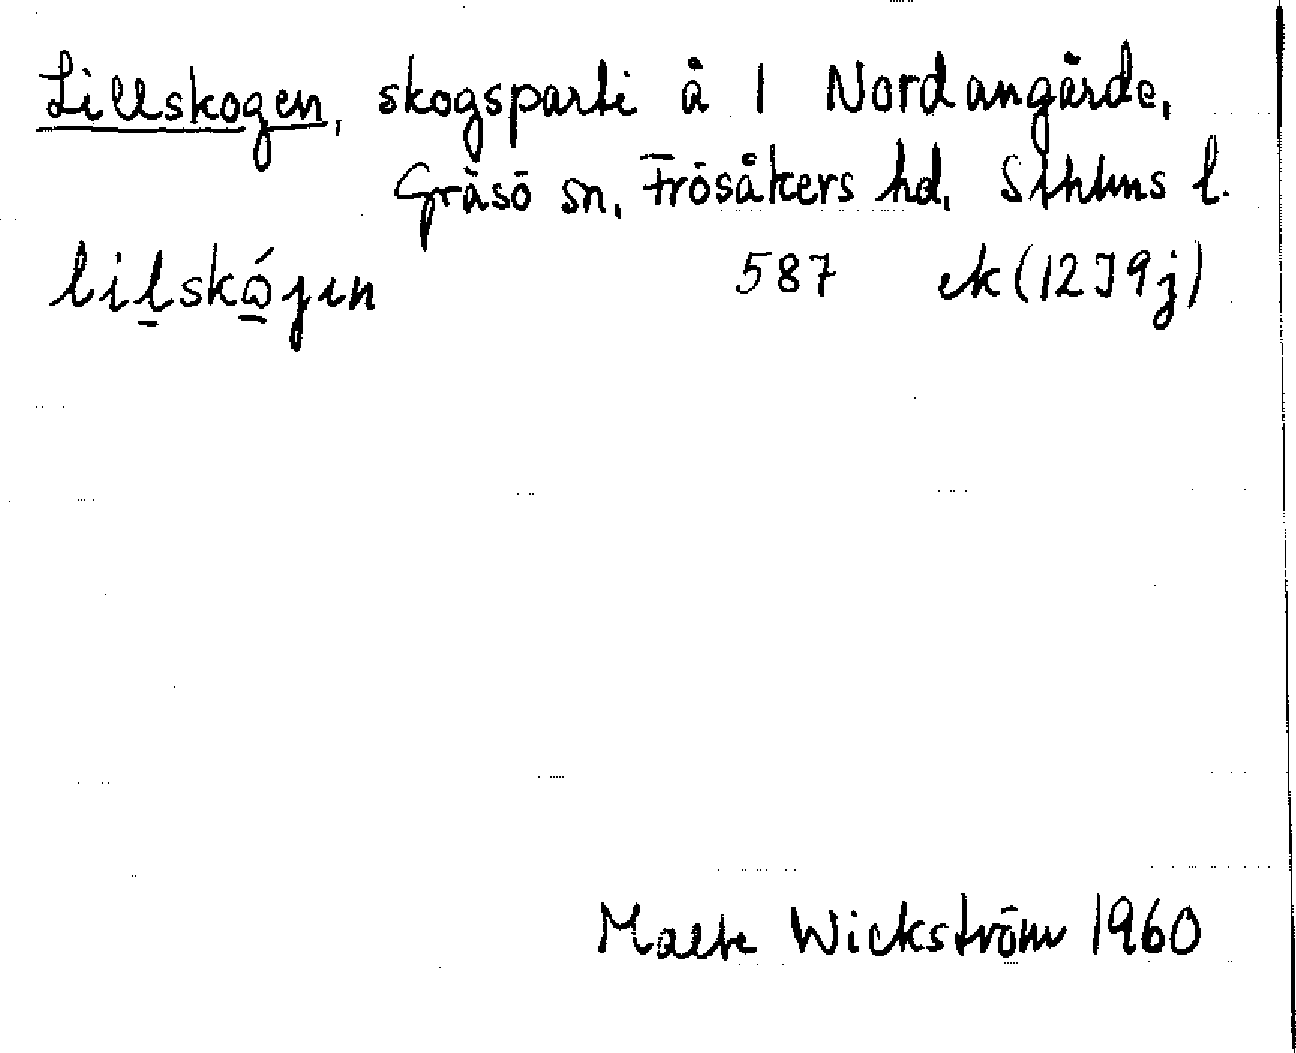 Lillskogen, skogsparti å 1 Nordangärde,
Gräsö sn, Frösåkers hd, Sthlms l.
lilskógen 587 ek (12 I 9 j)
Malte Wickström 1960